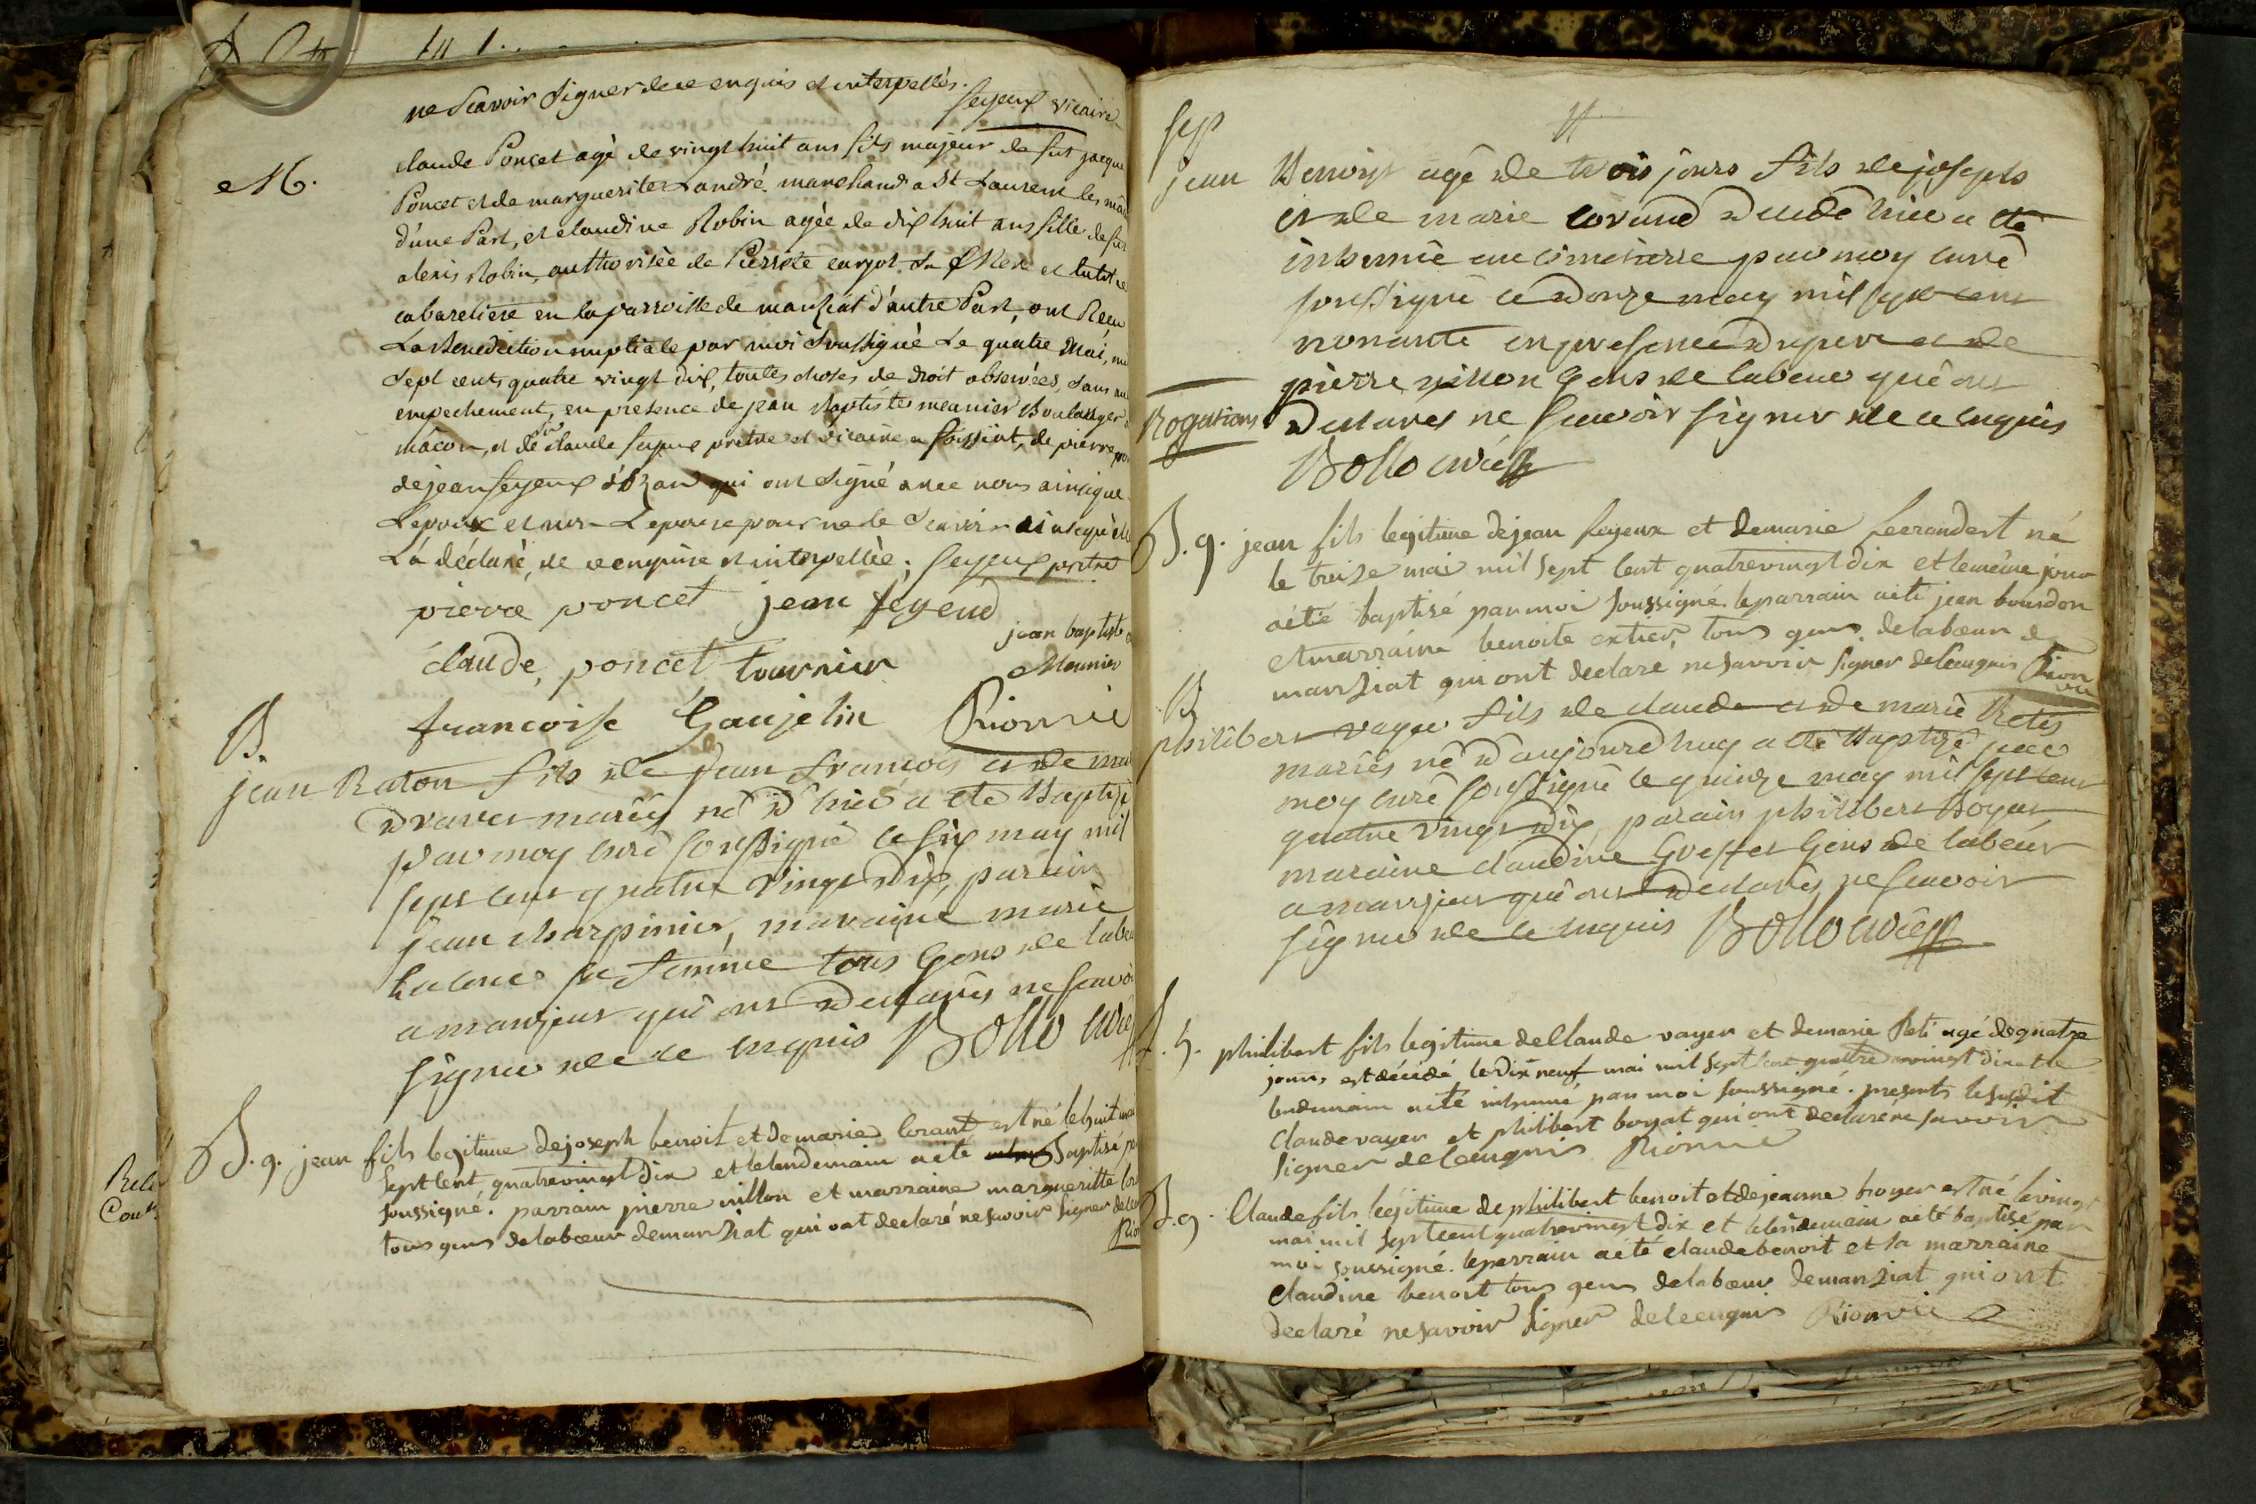 ne Scavoir Signer de ce enquis et interpellés.
feyeux vicaire
M.
claude Poncet agé de vingt huit ans fils majeur de fut jacque
Poncet et de marguerite Landré marchand a St Laurent les mâ
d'une Part, et claudine Robin agée de dix huit ans fille de fut
alexis Robin, authorisée de Pierrete curjot Sa Mere et tutrice
cabaretiere en la parroisse de manziat d'autre Part, ont Recu
La Benediction nuptiale par moi Soussigné Le quatre Mai, mil
Sept cents quatre vingt dix, toutes choses de droit observées, Sans nul
empechement, en presence de jean Baptiste meunier Boulanger a
mâcon, et de Sr claude feyeux pretre et vicaire a foissiat, de pierre pon
de jean feyeux d'Ozan qui ont Signé avec nous ainsi que
L'epoux et non L'epouse pour ne le Scavoir ainsi qu'elle
L'a déclaré, de ce enquise et interpellée; feyeux pretre
pierre poncet jean feyeux
jean baptiste
claude poncet tournier Meunier
francoise Gaujelin Rionnie
B.
jean Raton fils de Jean francois et de ma
dravet mariés né d'hier a eté Baptizé
par moy curé soussigné le six may mil
sept cent quatre vingt dix, parain
jean charpinier, maraine marie
sa femme tous Gens de labeu
a manziat qui ont declarés ne scavoi
signer de ce enquis Bollo curé
B. g. jean fils legitime de joseph benoit et de marie lorant est né le huit mai
sept cent quatrevingt dix et le lendemain a été baptisé pa
soussigné. parrain pierre villon et marraine margueritte lor
tous gens de labœur de manziat qui ont declaré ne savoir signer de ce
Rio
Sep
jean Benoist agé de trois jours fils de joseph
et de marie lorand decedé hier a eté
inhumé au cimetierre par moy curé
soussigné ce donze may mil sept cent
nonante en presence du pere et de
pierre villon Gens de labeur qui ont
Rogations
declarés ne scavoir signer de ce enquis
Bollo curé
B. g. jean fils legitime de jean feyeux et de marie ferrandert né
le treize mai mil sept cent quatrevingt dix et le même jour
a été baptisé par moi soussigné. le parrain a été jean bourdon
et marraine benoite extier, tous gens de labœur de
manziat qui ont declaré ne savoir signer de ce enquis Rion
vic
B
philibert vayer fils de claude et de marie Reti
mariés né d'aujourd huy a eté Baptizé par
moy curé soussigné le quinze may mil sept cent
quatre vingt dix, parain philibert Boyat
maraine claudine Greffet Gens de labeur
a manziat qui ont declarés ne scavoir
signer de ce enquis Bollo curé
S. g. philibert fils legitime de Claude vayer et de marie Reti agé de quatre
jours, est décédé le dix neuf mai mil sept cent quatre vingt dix et le
lendemain a été inhumé par moi soussigné. presents le susdit
Claude vayer et philibert boyat qui ont declaré ne savoir
signer de ce enquis Rionnie
B. g. Claude fils légitime de philibert benoit et de jeanne broyer est né le vingt
mai mil sept cent quatrevingt dix et le lendemain a été baptisé par
moi soussigné. le parrain a été claude benoit et la marraine
Claudine benoit tous gens de labœur de manziat qui ont
declaré ne savoir signer de ce enquis Rionvic